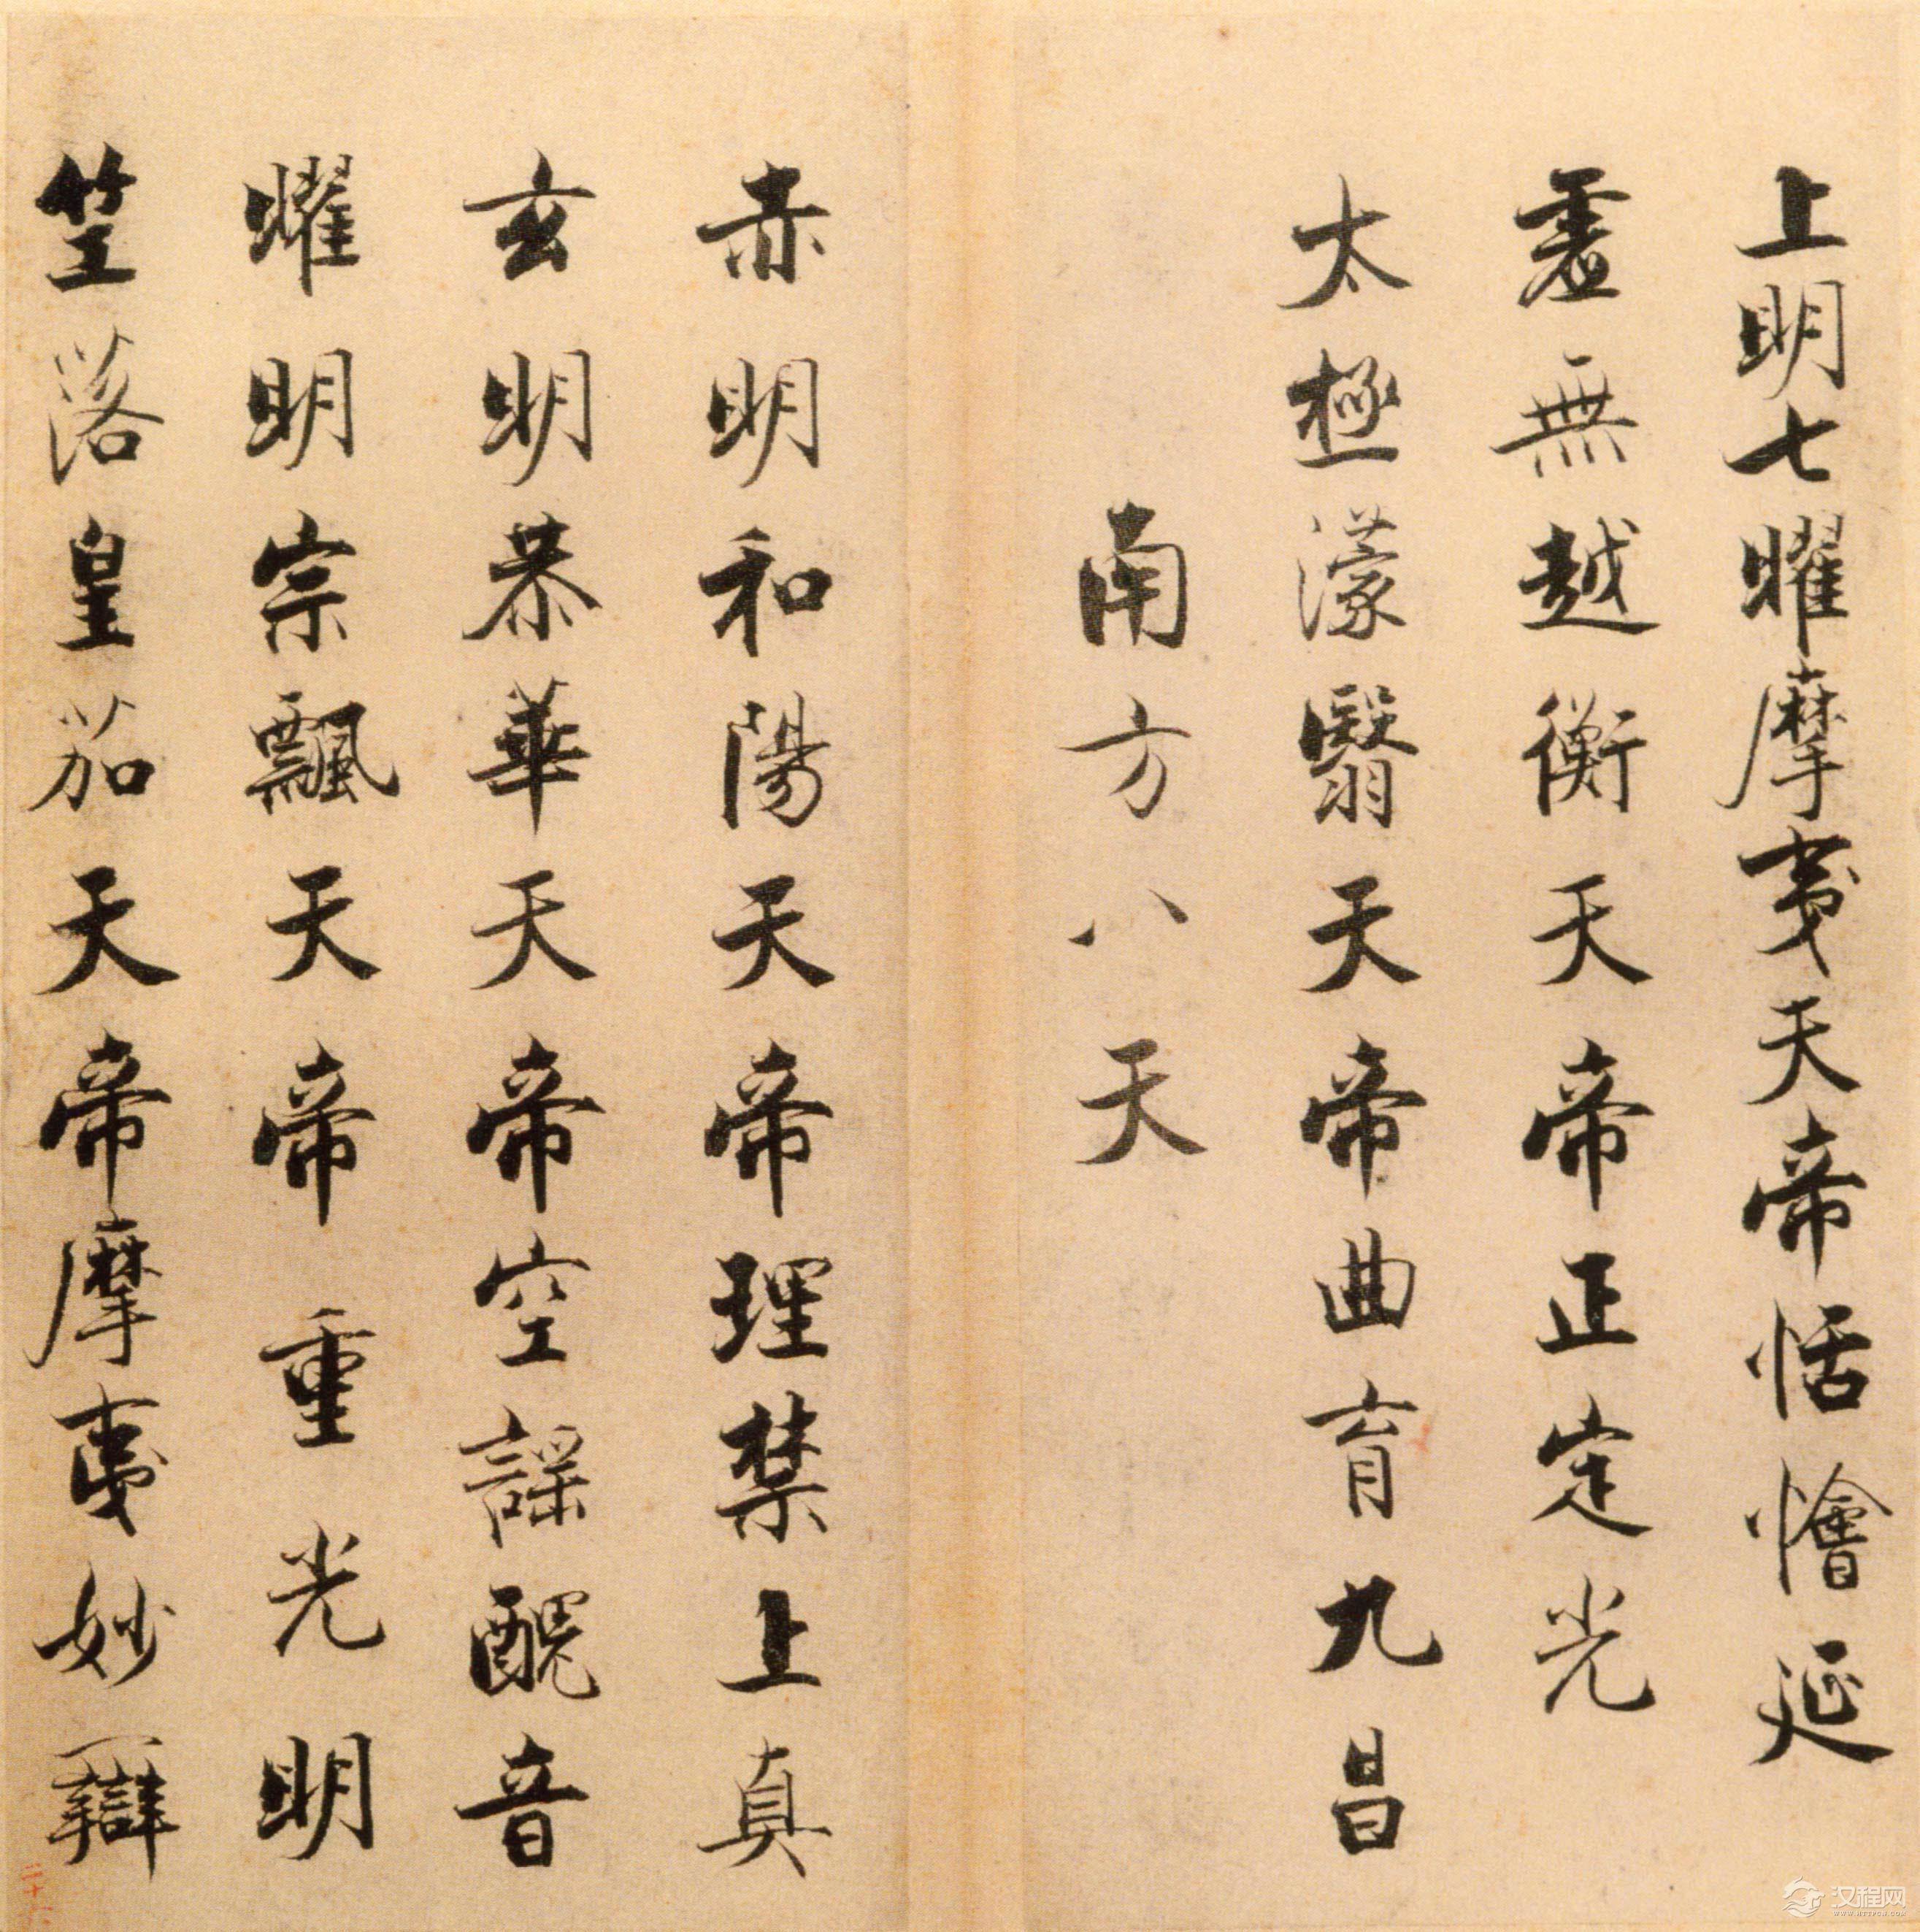 上明七曜摩夷天帝恬憎延
虛無越衡天帝正定光
太極濛翳天帝曲育九昌
南方八天
赤明和陽天帝理禁上真
玄明恭華天帝空謡醜音
曜明宗飄天帝重光明
竺落皇笳天帝摩夷妙辯
二十六
汉程网
WWW.HTTPCN.COM